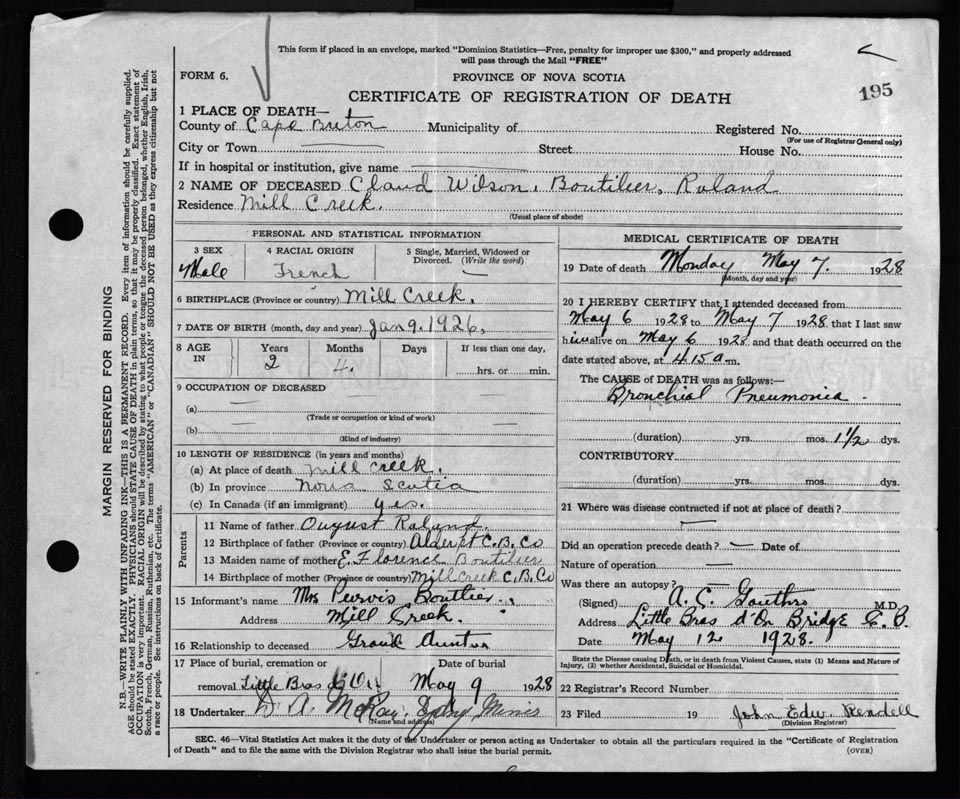 This form if placed in an envelope, marked "Dominion Statistics—Free, penalty for improper use $300," and properly addressed
will pass through the Mail "FREE"
FORM 6.
PROVINCE OF NOVA SCOTIA
CERTIFICATE OF REGISTRATION OF DEATH
195
1 PLACE OF DEATH—
County of Cape Breton Municipality of Registered No.
(For use of Registrar General only)
City or Town Street House No.
If in hospital or institution, give name
2 NAME OF DECEASED Claud Wilson, Boutilier, Roland
Residence Mill Creek.
(Usual place of abode)
PERSONAL AND STATISTICAL INFORMATION
3 SEX 4 RACIAL ORIGIN 5 Single, Married, Widowed or Divorced. (Write the word)
Male French —
6 BIRTHPLACE (Province or country) Mill Creek.
7 DATE OF BIRTH (month, day and year) Jan 9. 1926.
8 AGE IN Years Months Days If less than one day,
2 4. hrs. or min.
9 OCCUPATION OF DECEASED
(a)
(Trade or occupation or kind of work)
(b)
(Kind of industry)
10 LENGTH OF RESIDENCE (in years and months)
(a) At place of death Mill Creek.
(b) In province Nova Scotia
(c) In Canada (if an immigrant) yes.
Parents
11 Name of father Ougust Roland.
12 Birthplace of father (Province or country) C. B. Co
13 Maiden name of mother E. Florence Boutilier
14 Birthplace of mother (Province or country) Mill Creek C. B. Co
15 Informant's name Mrs Purvis Boutlier.
Address Mill Creek.
16 Relationship to deceased Grand
17 Place of burial, cremation or Date of burial
removal Little Bras d'Or May 9 1928
18 Undertaker D. A. McKay Sydney Mines
(Name and address)
MEDICAL CERTIFICATE OF DEATH
19 Date of death Monday May 7. 1928
(Month, day and year)
20 I HEREBY CERTIFY that I attended deceased from
May 6 1928 to May 7 1928 that I last saw
him alive on May 6 1928 and that death occurred on the
date stated above, at 4.15 a m.
The CAUSE of DEATH was as follows:—
Bronchial Pneumonia.
(duration) yrs. mos. 1 1/2 dys.
CONTRIBUTORY
(duration) yrs. mos. dys.
21 Where was disease contracted if not at place of death?
Did an operation precede death? — Date of
Nature of operation —
Was there an autopsy? —
(Signed) A. C. Gouthro M.D.
Address Little Bras d'Or Bridge C. B.
Date May 12 1928.
State the Disease causing Death, or in death from Violent Causes, state (1) Means and Nature of
Injury, (2) whether Accidental, Suicidal or Homicidal.
22 Registrar's Record Number
23 Filed 19 John Edw. Rendell
(Division Registrar)
SEC. 46—Vital Statistics Act makes it the duty of the Undertaker or person acting as Undertaker to obtain all the particulars required in the "Certificate of Registration
of Death" and to file the same with the Division Registrar who shall issue the burial permit. (OVER)
MARGIN RESERVED FOR BINDING
N.B.—WRITE PLAINLY WITH UNFADING INK—THIS IS A PERMANENT RECORD. Every item of information should be carefully supplied.
AGE should be stated EXACTLY. PHYSICIANS should STATE CAUSE OF DEATH in plain terms, so that it may be properly classified. Exact statement of
OCCUPATION is very important. RACIAL ORIGIN will be described by stating to what people or tongue the deceased person belonged, whether English, Irish,
Scotch, French, German, Russian, Ruthenian, etc. The terms "AMERICAN" or "CANADIAN" SHOULD NOT BE USED as they express citizenship but not
a race or people. See instructions on back of Certificate.